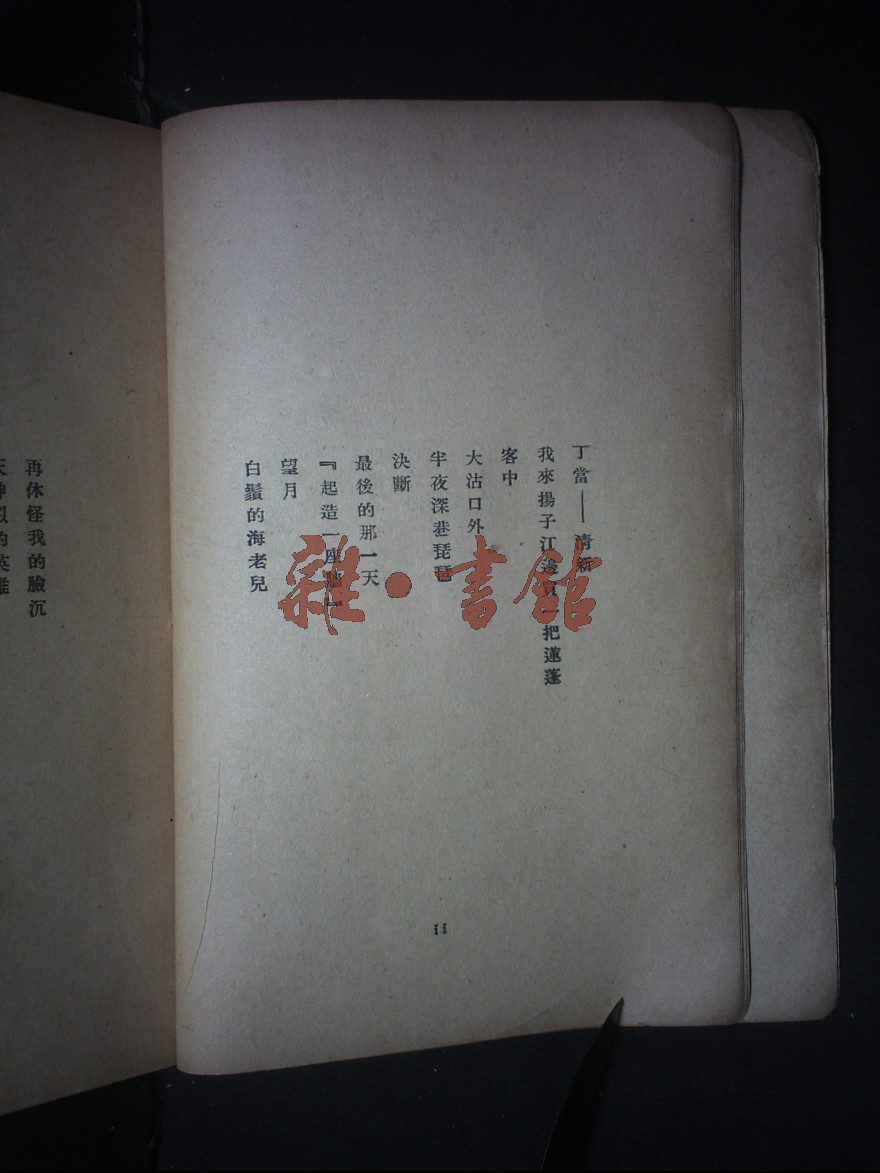 丁當——清新
我來揚子江邊買一把蓮蓬
客中
大沽口外
半夜深巷琵琶
決斷
最後的那一天
『起造一座牆』
望月
白鬚的海老兒
11
再休怪我的臉沉
天神似的英雄
雜·書館